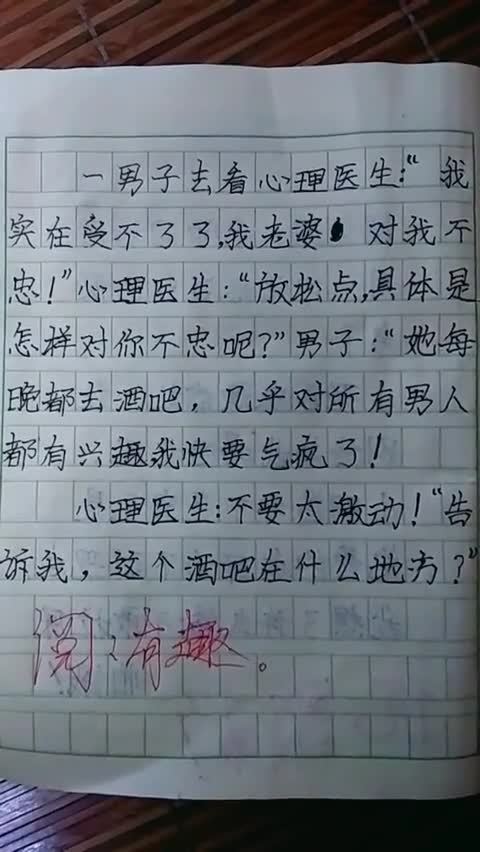 一男子去看心理医生:“我
实在受不了了,我老婆 对我不
忠!”心理医生:“放松点,具体是
怎样对你不忠呢?”男子:“她每
晚都去酒吧,几乎对所有男人
都有兴趣,我快要气疯了!
心理医生:不要太激动!“告
诉我,这个酒吧在什么地方?”
阅、有趣。